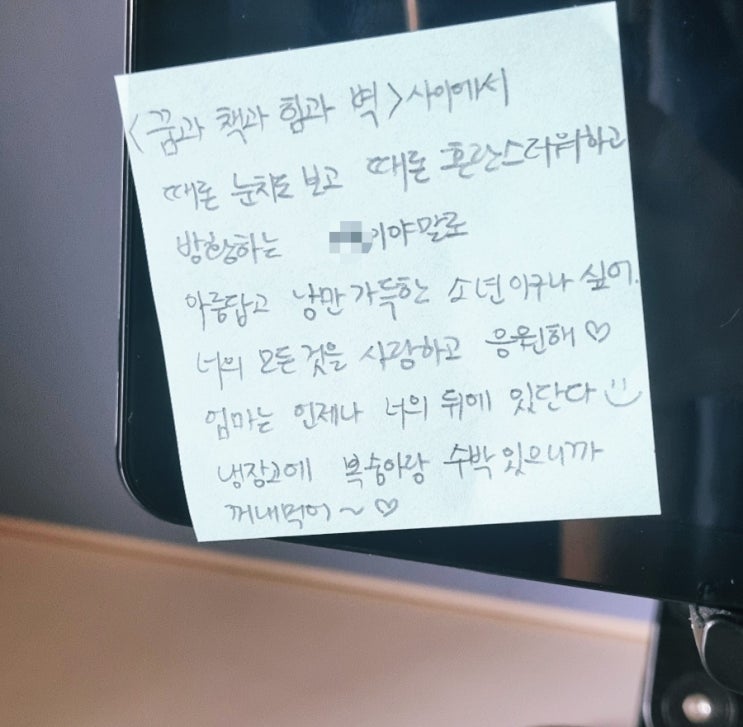 <꿈과 책과 힘과 벽>사이에서
때론 눈치도 보고 때론 혼란스러워하고
방황하는 이야말로
아름답고 낭만가득한 소년이구나 싶어.
너의 모든것을 사랑하고 응원해♡
엄마는 언제나 너의 뒤에 있단다
냉장고에 복숭아랑 수박있으니까
꺼내먹어~♡